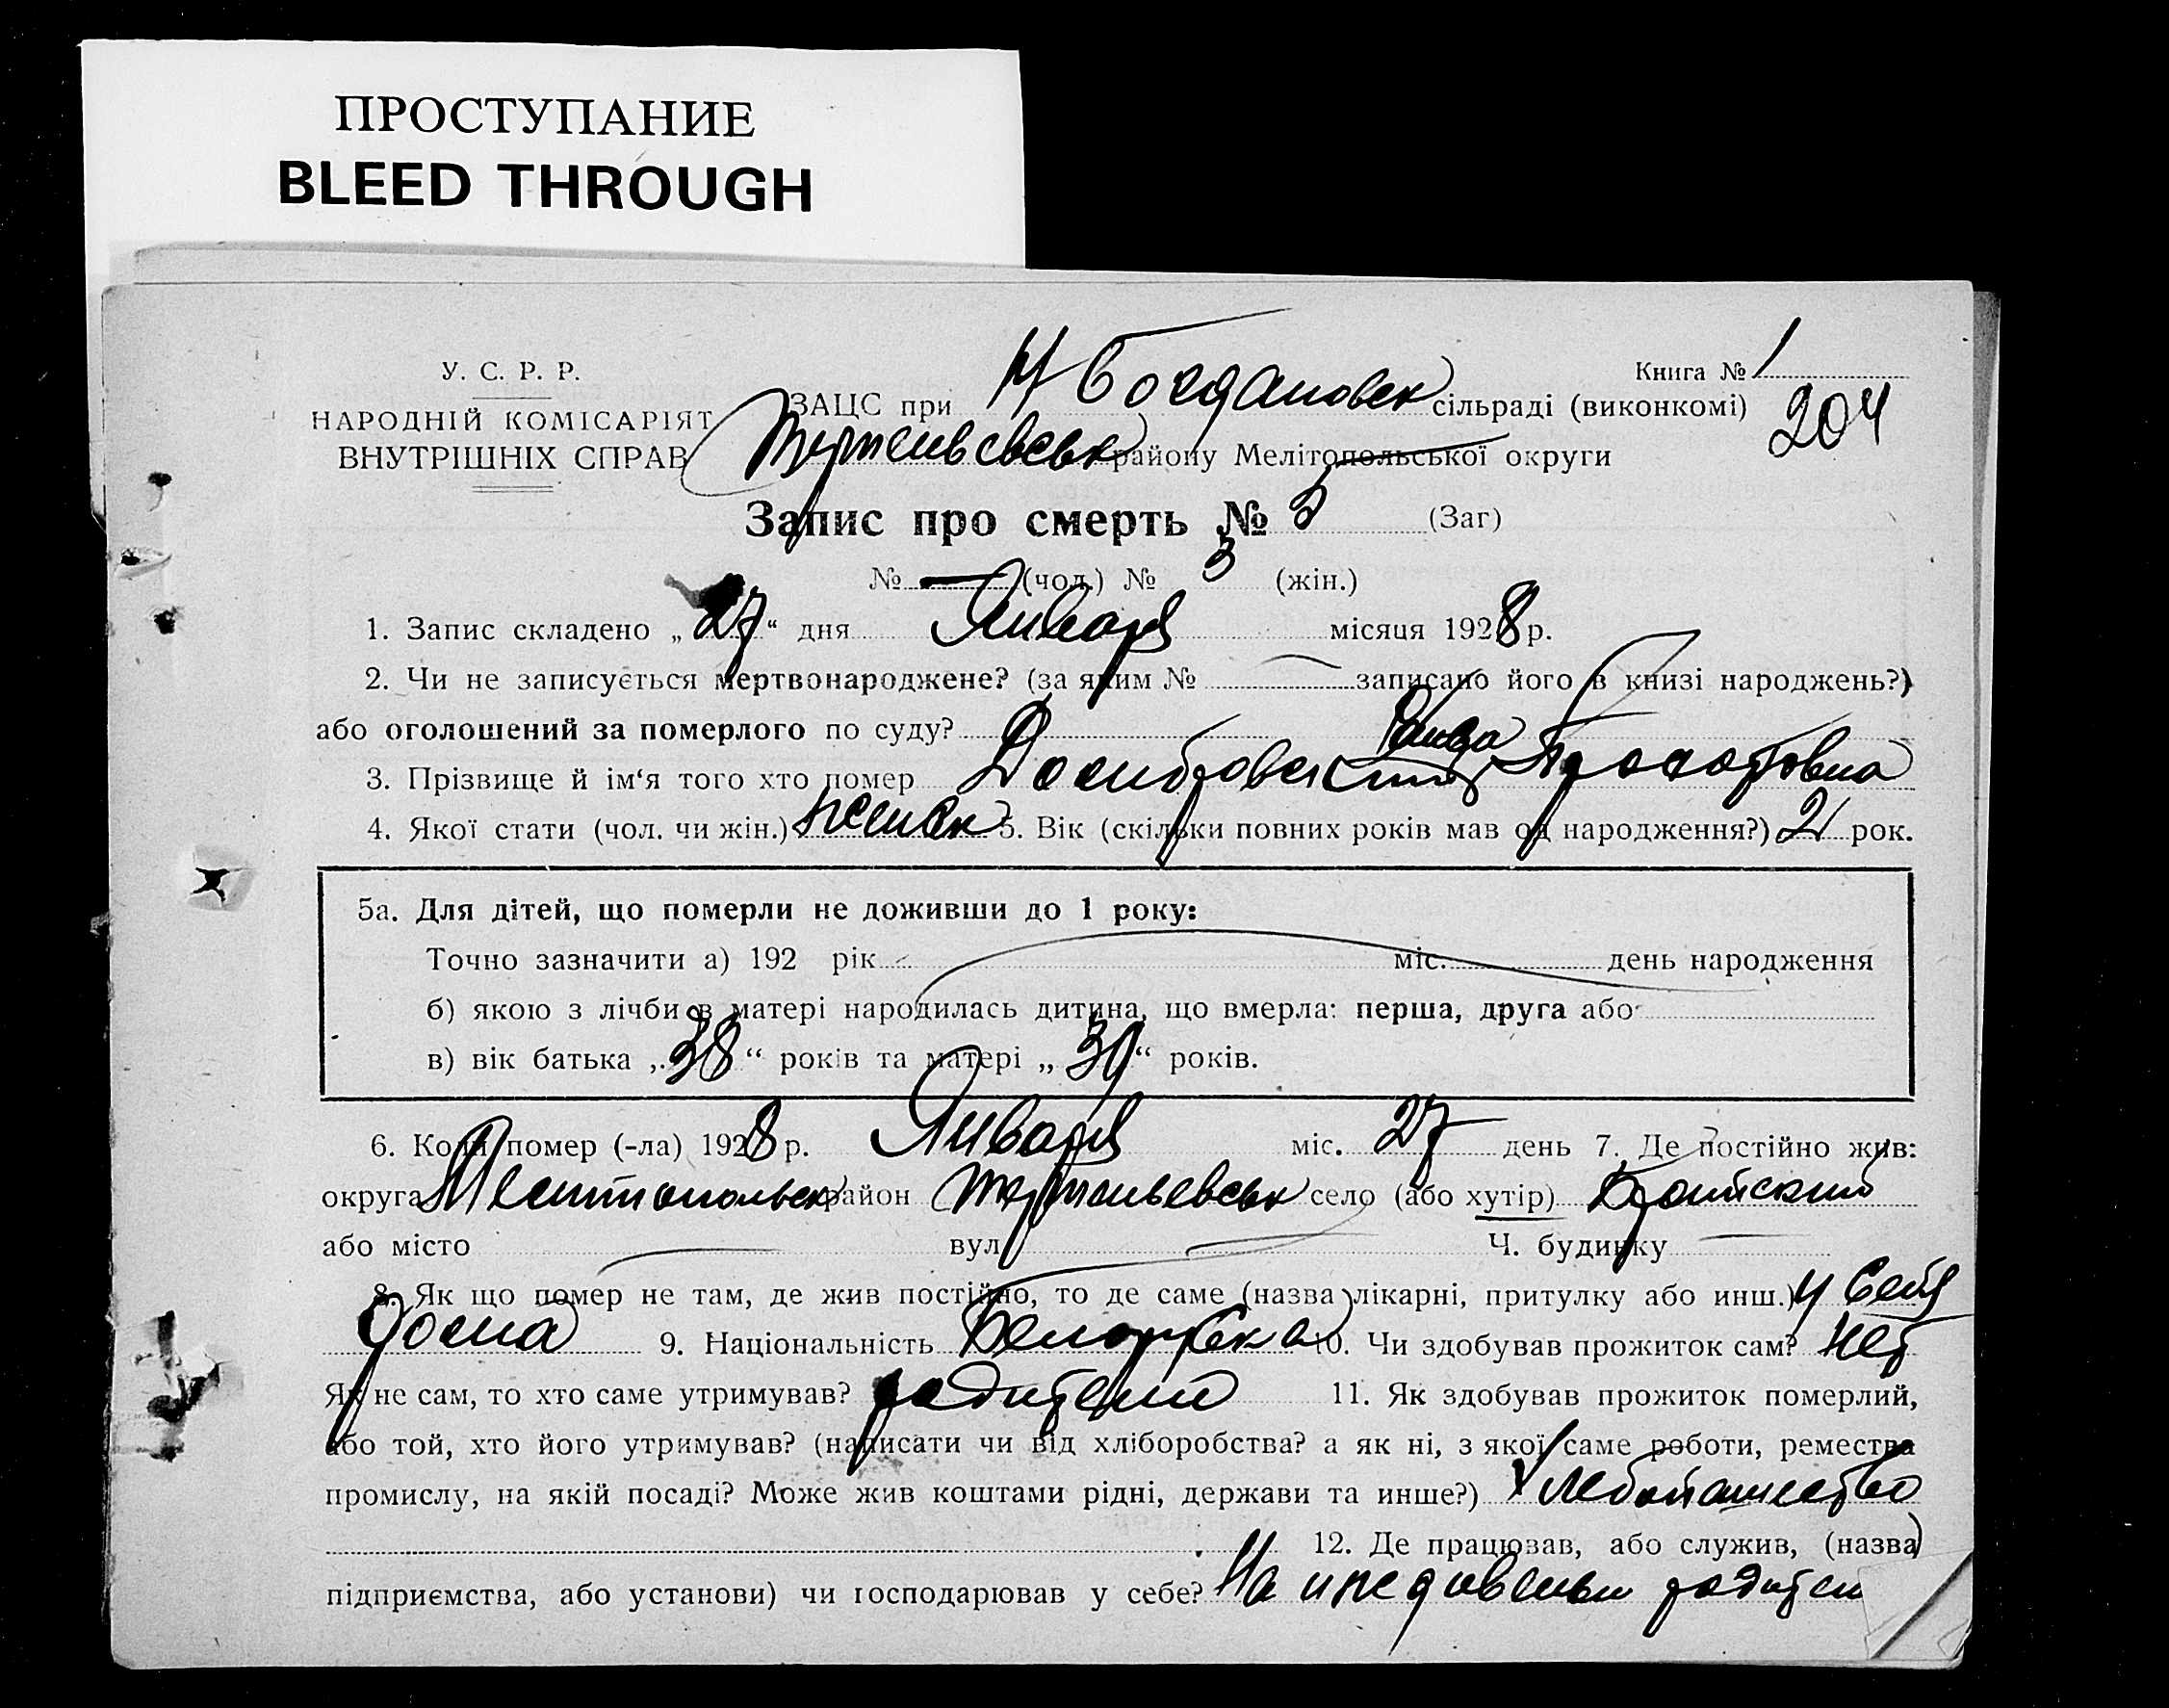 ПРОСТУПАНИЕ
BLEED THROUGH
У. С. Р. Р.
НАРОДНІЙ КОМІСАРІЯТ
ВНУТРІШНІХ СПРАВ
Книга № 1
204
ЗАЦС при Н Богдановск сільраді (виконкомі)
району Мелітопольської округи
Запис про смерть № 5 (Заг)
№ — (чол.) № 3 (жін.)
1. Запис складено „27“ дня Января місяця 1928 р.
2. Чи не записується мертвонароджене? (за яким № записано його в книзі народжень?)
або оголошений за померлого по суду?
3. Прізвище й ім‘я того хто помер
4. Якої стати (чол. чи жін.) женск 5. Вік (скільки повних років мав од народження?) 2 рок.
5а. Для дітей, що померли не доживши до 1 року:
Точно зазначити а) 192 рік міс. день народження
б) якою з лічби в матері народилась дитина, що вмерла: перша, друга або
в) вік батька „38“ років та матері „39“ років.
6. Коли помер (-ла) 1928 р. Января міс. 27 день 7. Де постійно жив:
округа Мелитопольск район село (або хутір)
або місто вул Ч. будинку
8. Як що помер не там, де жив постійно, то де саме (назва лікарні, притулку або инш.) у себя
дома 9. Національність Белорусска 10. Чи здобував прожиток сам? нет
Як не сам, то хто саме утримував? родители 11. Як здобував прожиток померлий,
або той, хто його утримував? (написати чи від хліборобства? а як ні, з якої саме роботи, ремества
промислу, на якій посаді? Може жив коштами рідні, держави та инше?) Хлебопашество
12. Де працював, або служив, (назва
підприємства, або установи) чи господарював у себе? На иждивеньи родител